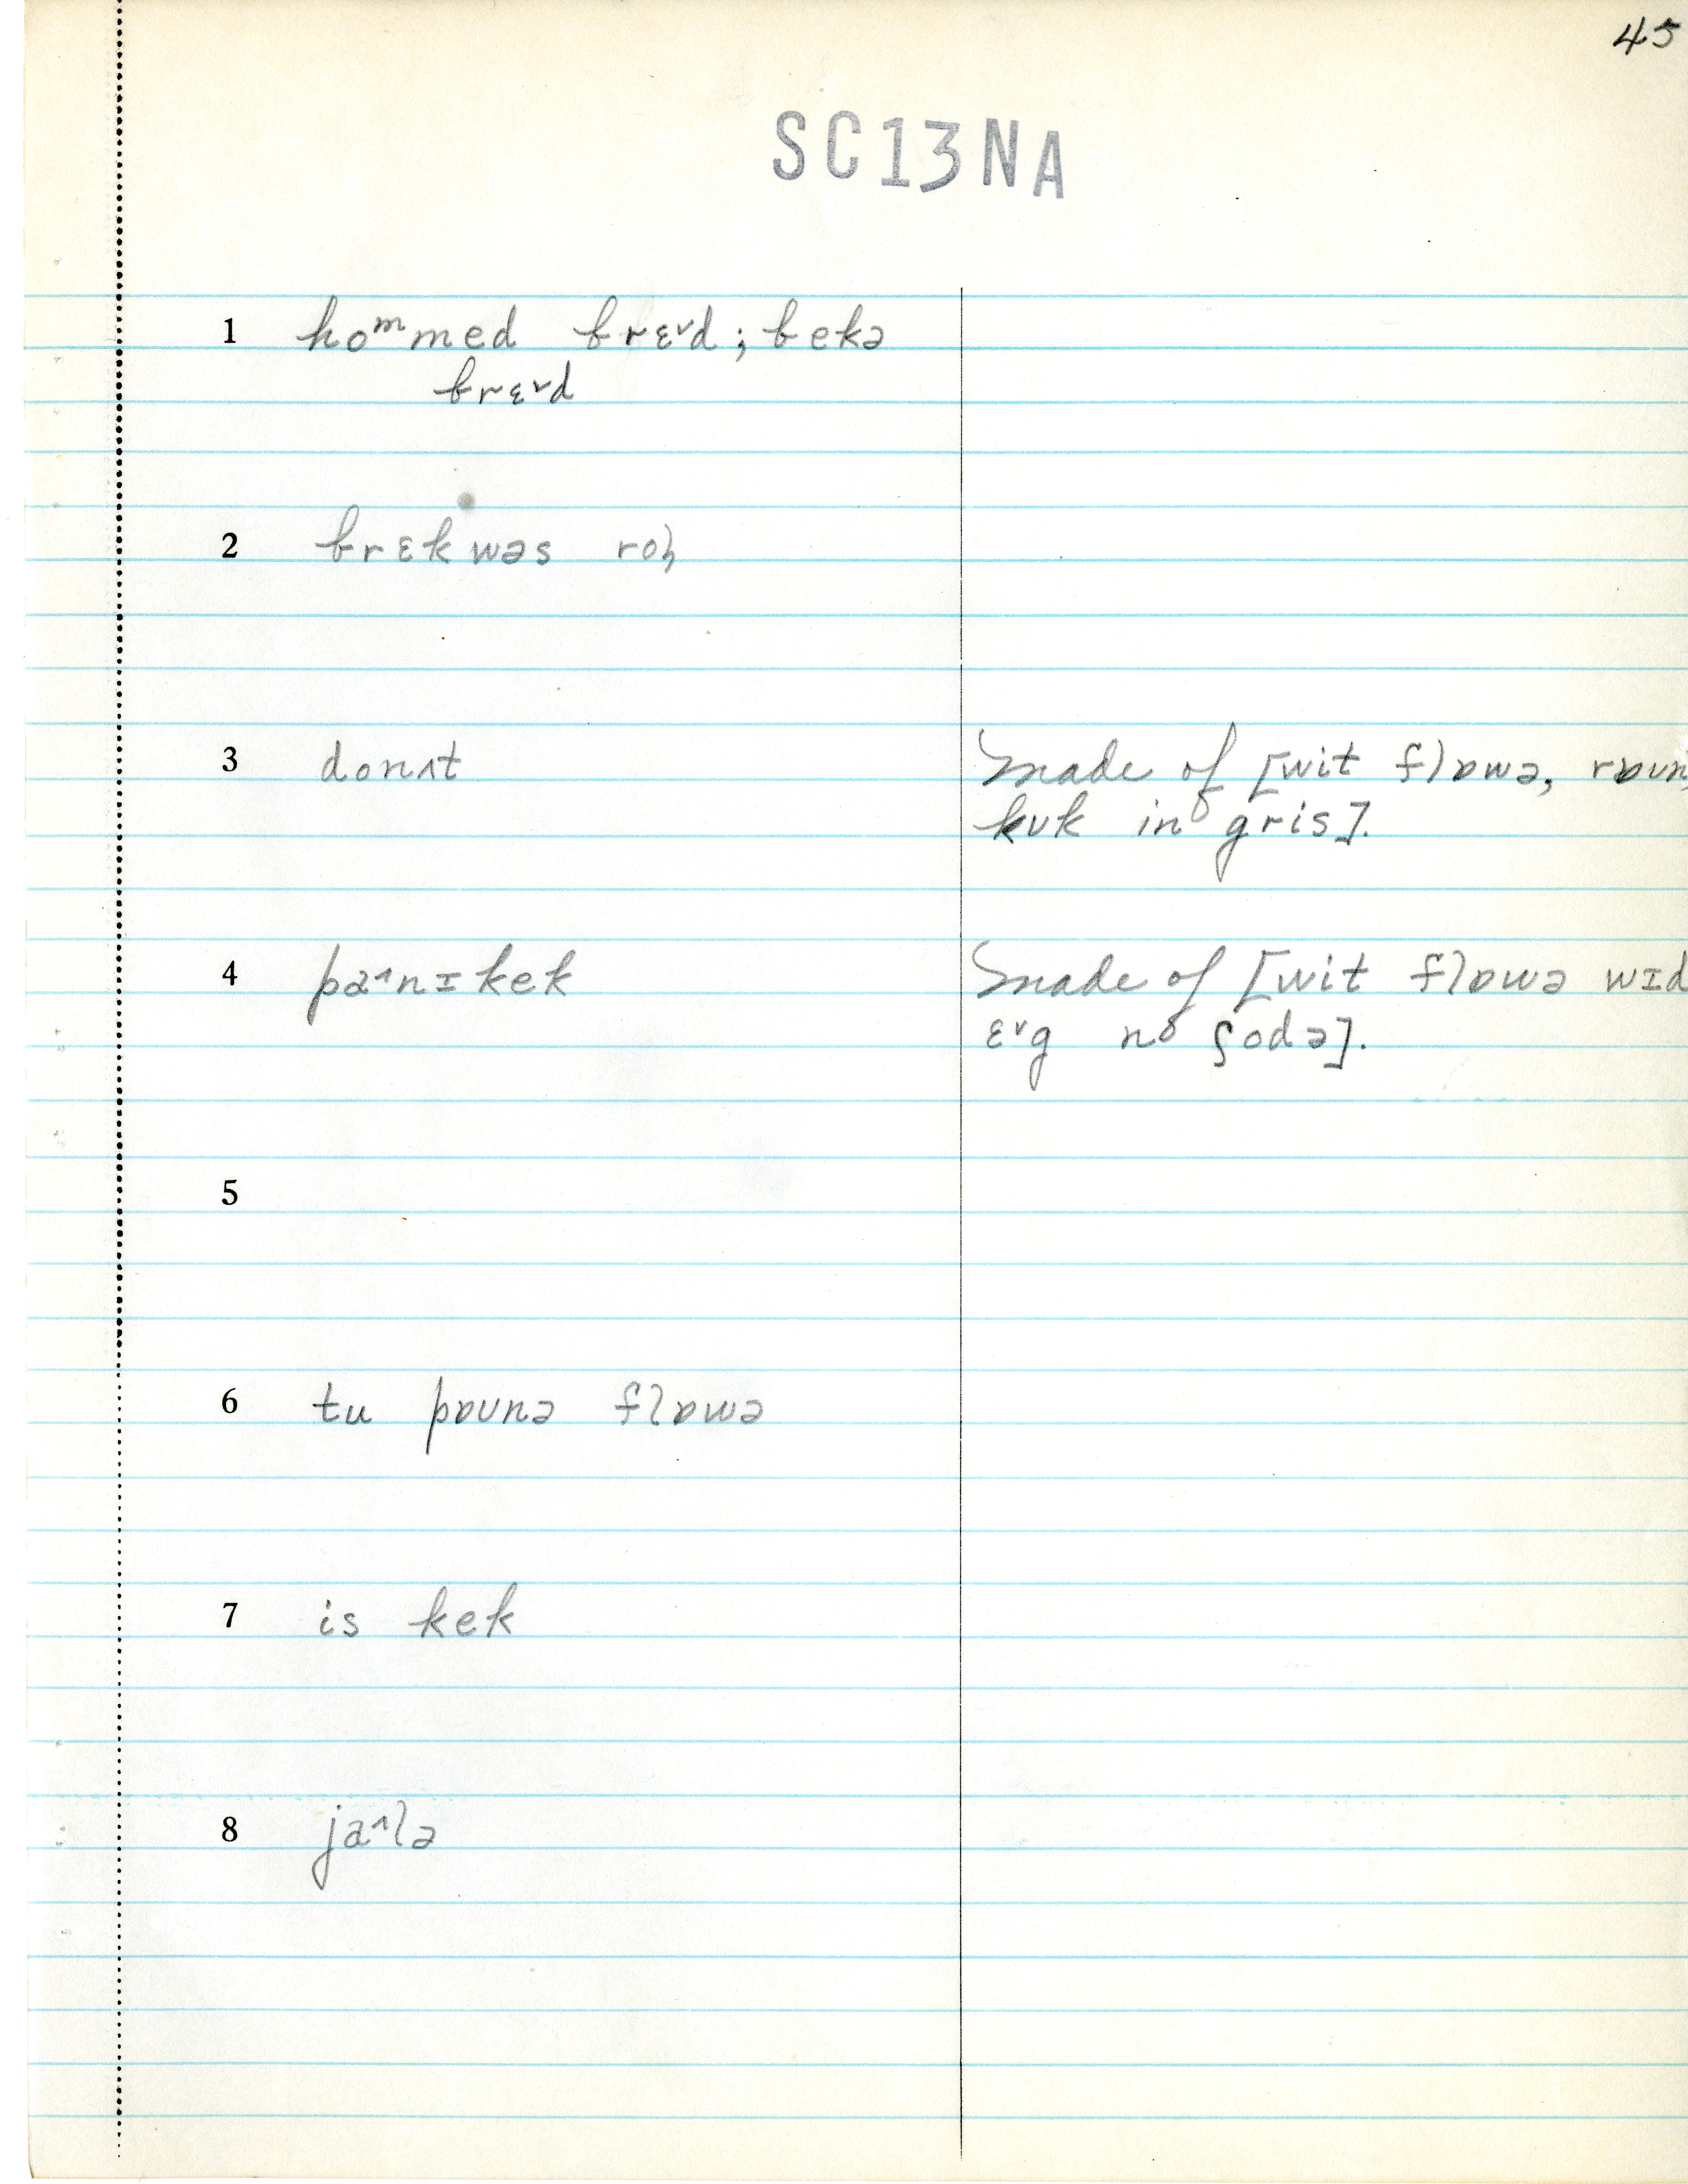 45
SC13NA
1 hoᵐmed brɛ˅d; bekə
brɛ˅d
2 brɛkwəs
3 donʌt
made of [wit flɒwə, rɒun,
kʊk in gris].
4 pa˄nɪkek
made of [wit flɒwə wɪd
ɛ˅g no sodə].
5
6 tu pɒʊnə flɒwə
7 is kek
8 ja˄lə